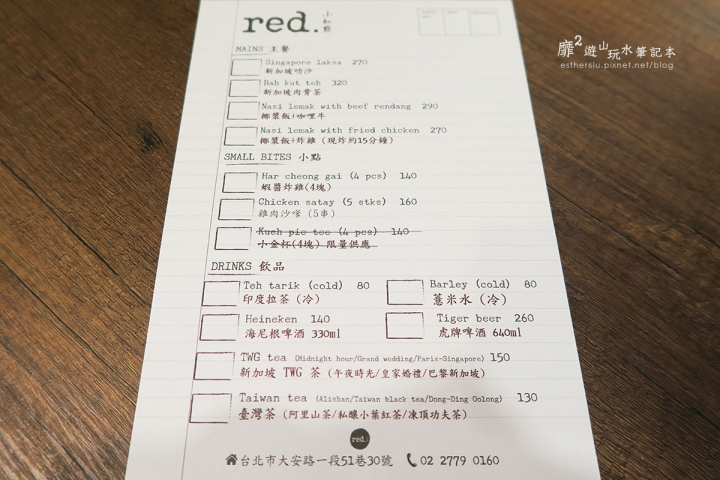 red.小紅點
靡²遊山玩水筆記本
esther6lu.pixnet.net/blog
MAINS 主餐
Singapore laksa 270
新加坡叻沙
Bah kut teh 320
新加坡肉骨茶
Nasi lemak with beef rendang 290
椰漿飯+咖哩牛
Nasi lemak with fried chicken 270
椰漿飯+炸雞 (現炸約15分鐘)
SMALL BITES 小點
Har cheong gai (4 pcs) 140
蝦醬炸雞(4塊)
Chicken satay (5 stks) 160
雞肉沙嗲 (5串)
Kueh pie tee (4 pcs) 140
小金杯(4塊) 限量供應
DRINKS 飲品
Teh tarik (cold) 80
印度拉茶 (冷)
Barley (cold) 80
薏米水 (冷)
Heineken 140
海尼根啤酒 330ml
Tiger beer 260
虎牌啤酒 640ml
TWG tea (Midnight hour/Grand wedding/Paris-Singapore) 150
新加坡 TWG 茶 (午夜時光/皇家婚禮/巴黎新加坡)
Taiwan tea (Alishan/Taiwan black tea/Dong-Ding Oolong) 130
臺灣茶 (阿里山茶/私釀小葉紅茶/凍頂功夫茶)
red.
台北市大安路一段51巷30號 02 2779 0160